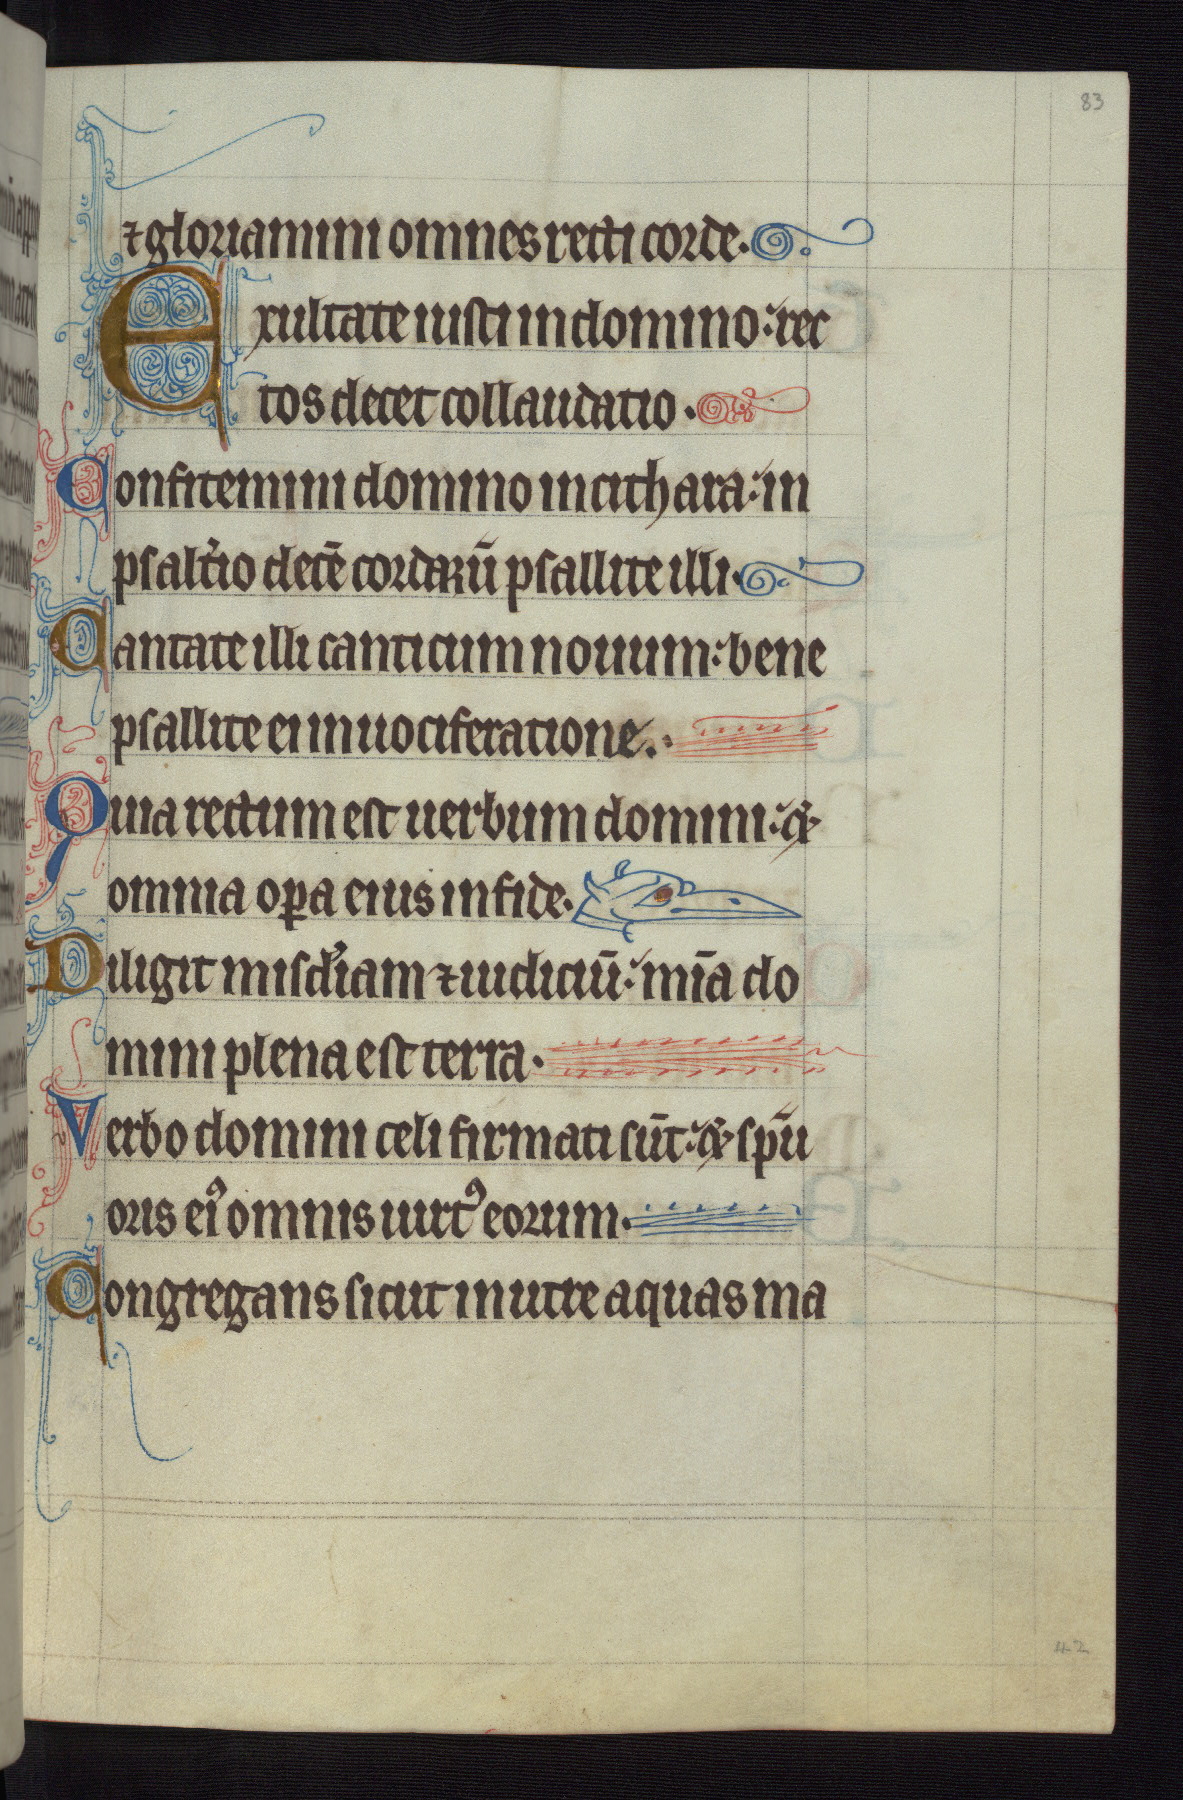 83
⁊ gloriamini omnes recti corde.
Exultate iusti in domino: rec
tos decet collaudatio.
Confitemini domino in cithara: in
psalt̾io decē cordaꝝū psallite illi.
Cantate illi canticum nouum: bene
psallite ei in uociferatione.
Quia rectum est uerbum domini: &
omnia oꝑa eius in fide.
Diligit misc̾diam ⁊ iudiciū: mīa do
mini plena est terra.
Verbo domini celi firmati sūt: & sp̄u
oris eiꝰ omnis uirtꝰ eorum.
Congregans sicut in utre aquas ma
42